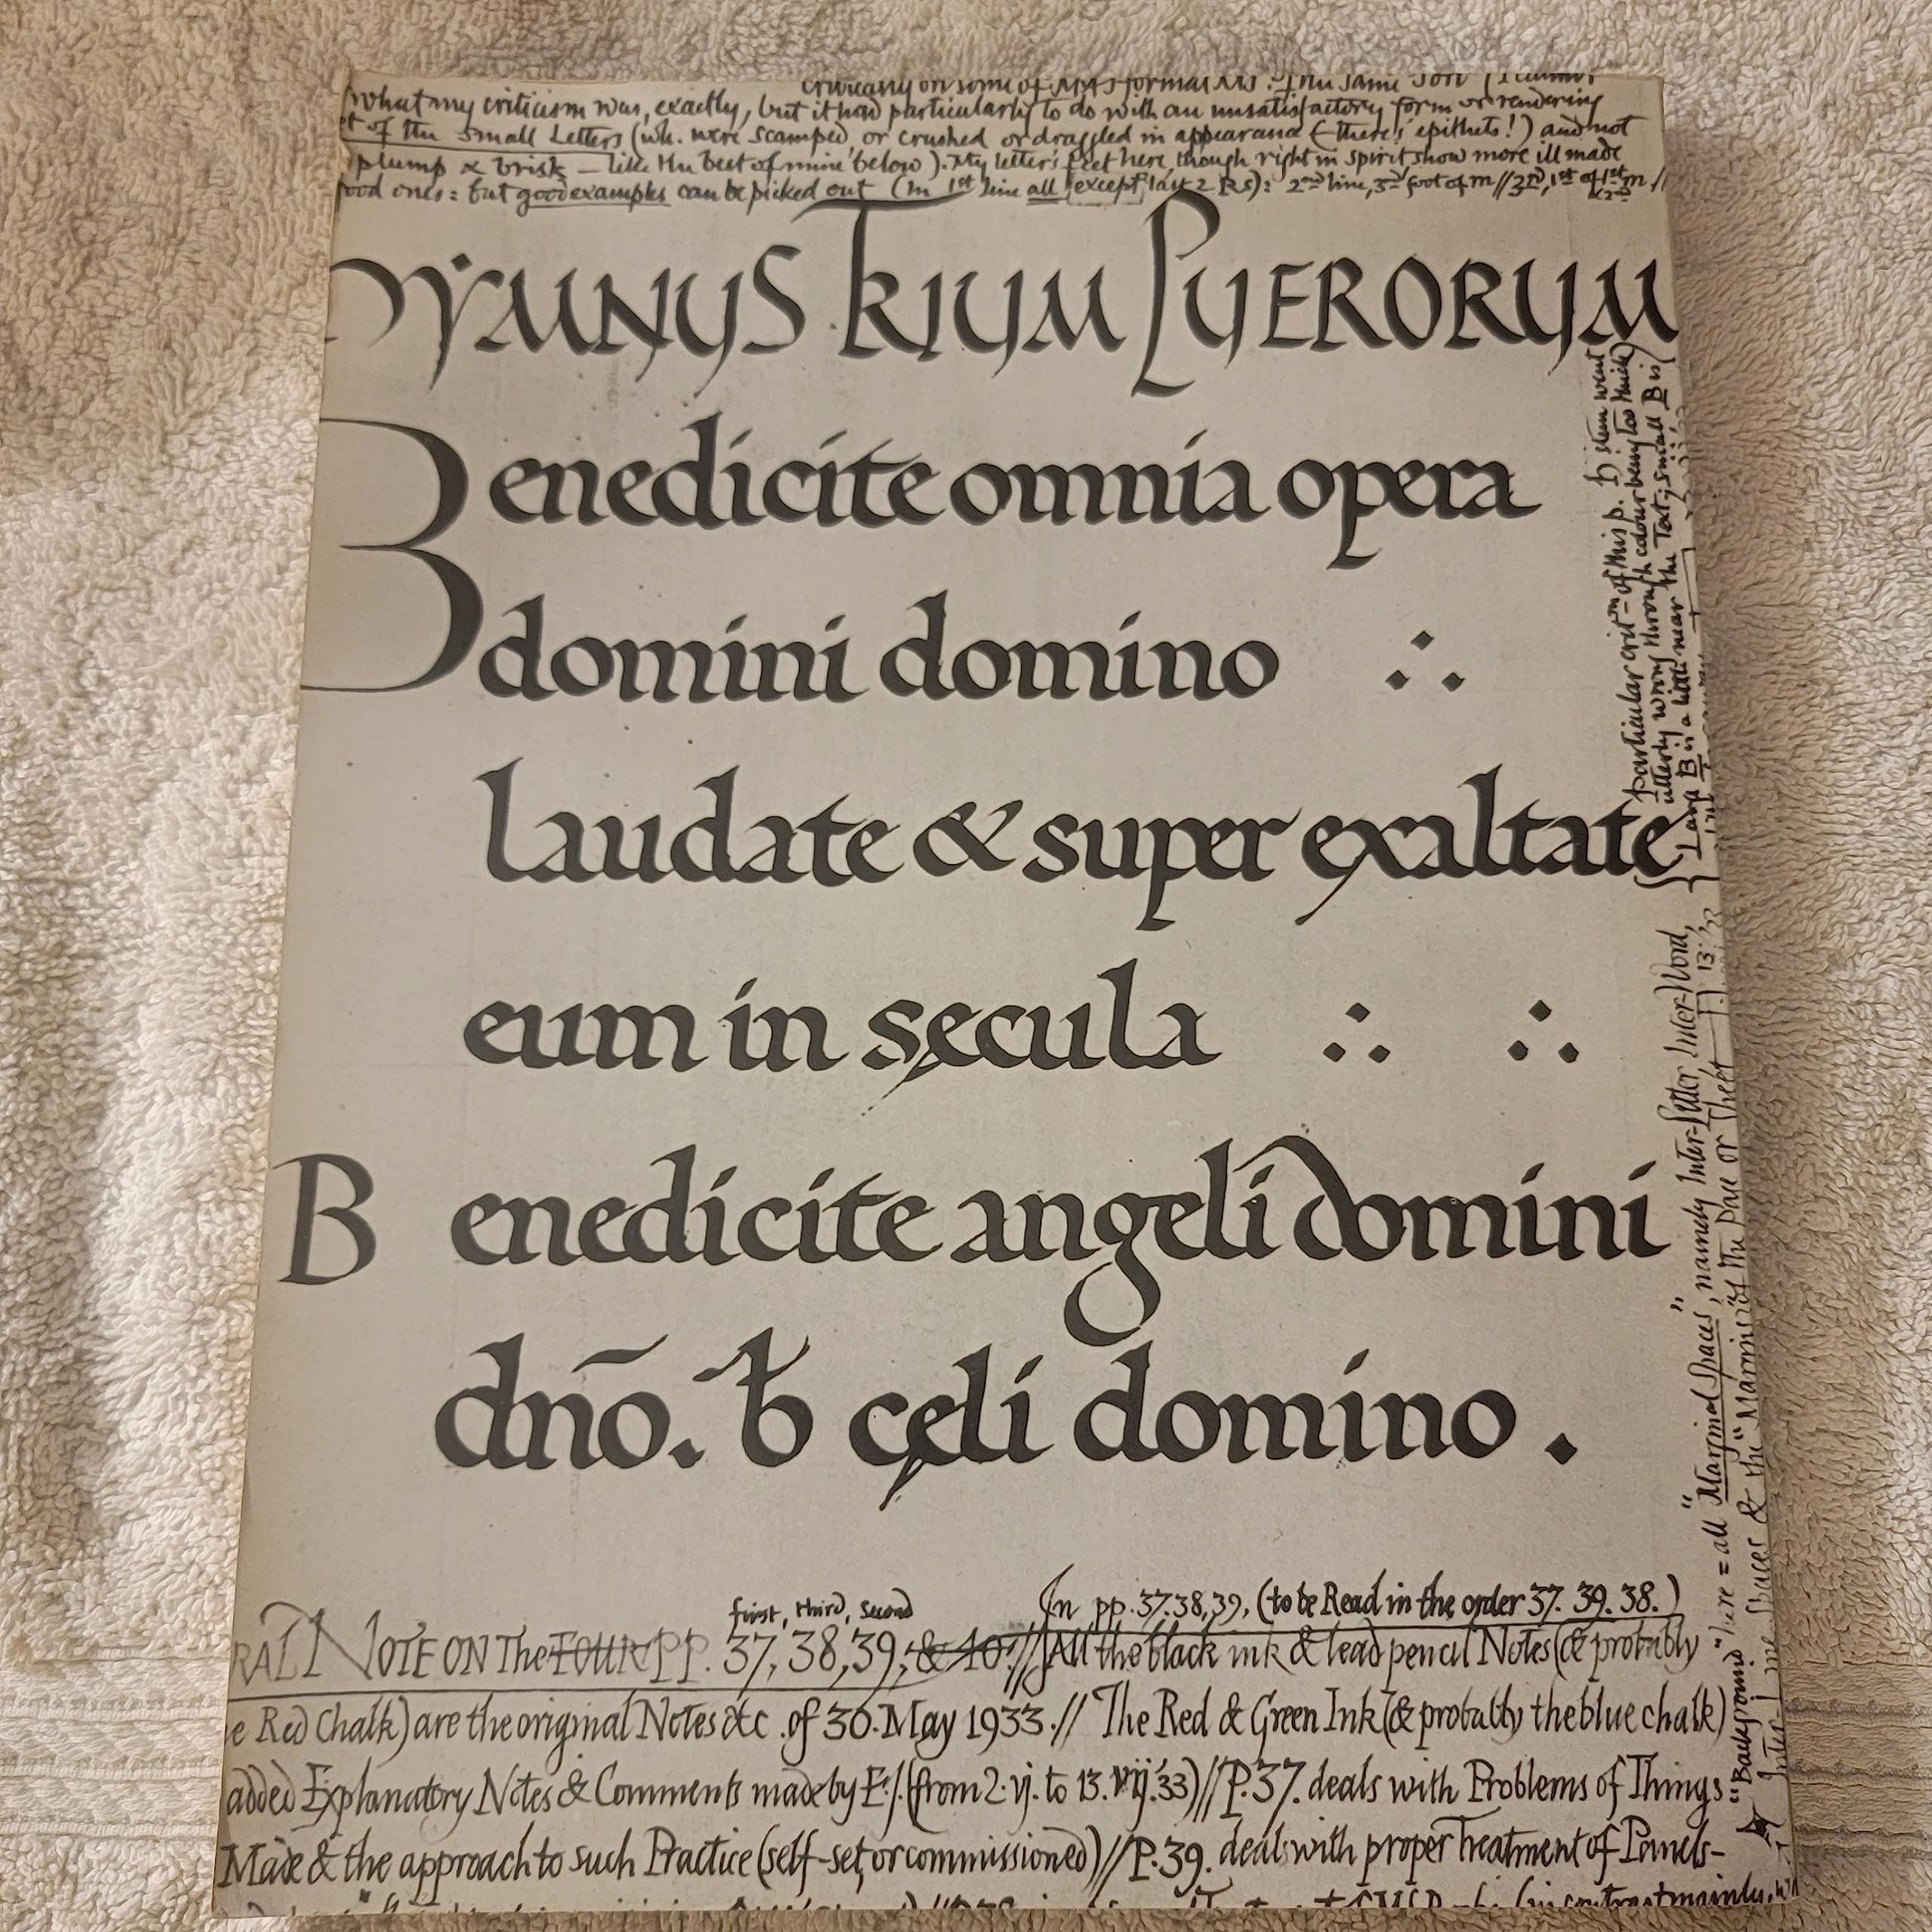 what my criticism was, exactly, but it had particularly to do with an unsatisfactory form or rendering
of the small Letters (wh. were scamped, or crushed or draggled in appearance (—there's epithets!) and not
plump & brisk — like the best of mine below). My letter's feet here, though right in spirit show more ill made
ood ones: but good examples can be picked out (in 1st line all except last 2 Rs): 2nd line, 3rd foot of m // 3rd, 1st of 1st m //
HYMNUS TRIUM PUERORUM
Benedicite omnia opera
domini domino ∴
laudate & super exaltate
eum in secula ∴ ∴
Benedicite angeli domini
dnō. b celi domino.
first, third, second
In pp. 37.38,39, (to be Read in the order 37. 39. 38.)
RAL NOTE ON The FOUR PP. 37, 38, 39, & 40: // All the black ink & lead pencil Notes (& probably
e Red Chalk) are the original Notes &c. of 30. May 1933. // The Red & Green Ink (& probably the blue chalk)
added Explanatory Notes & Comments made by E.J. (from 2. vj. to 13. vij. 33) // P. 37. deals with Problems of Things
Made & the approach to such Practice (self-set, or commissioned) // P. 39. deals with proper Treatment of Panels-
particular critm of this p. b stem went
utterly wrong through colour being too thick
Large B is a little near the Text; small B is
"Background" here = all "Marginal Spaces", namely Inter-letter, Inter-Word,
Spaces & the "Margins" of the Page or Sheet